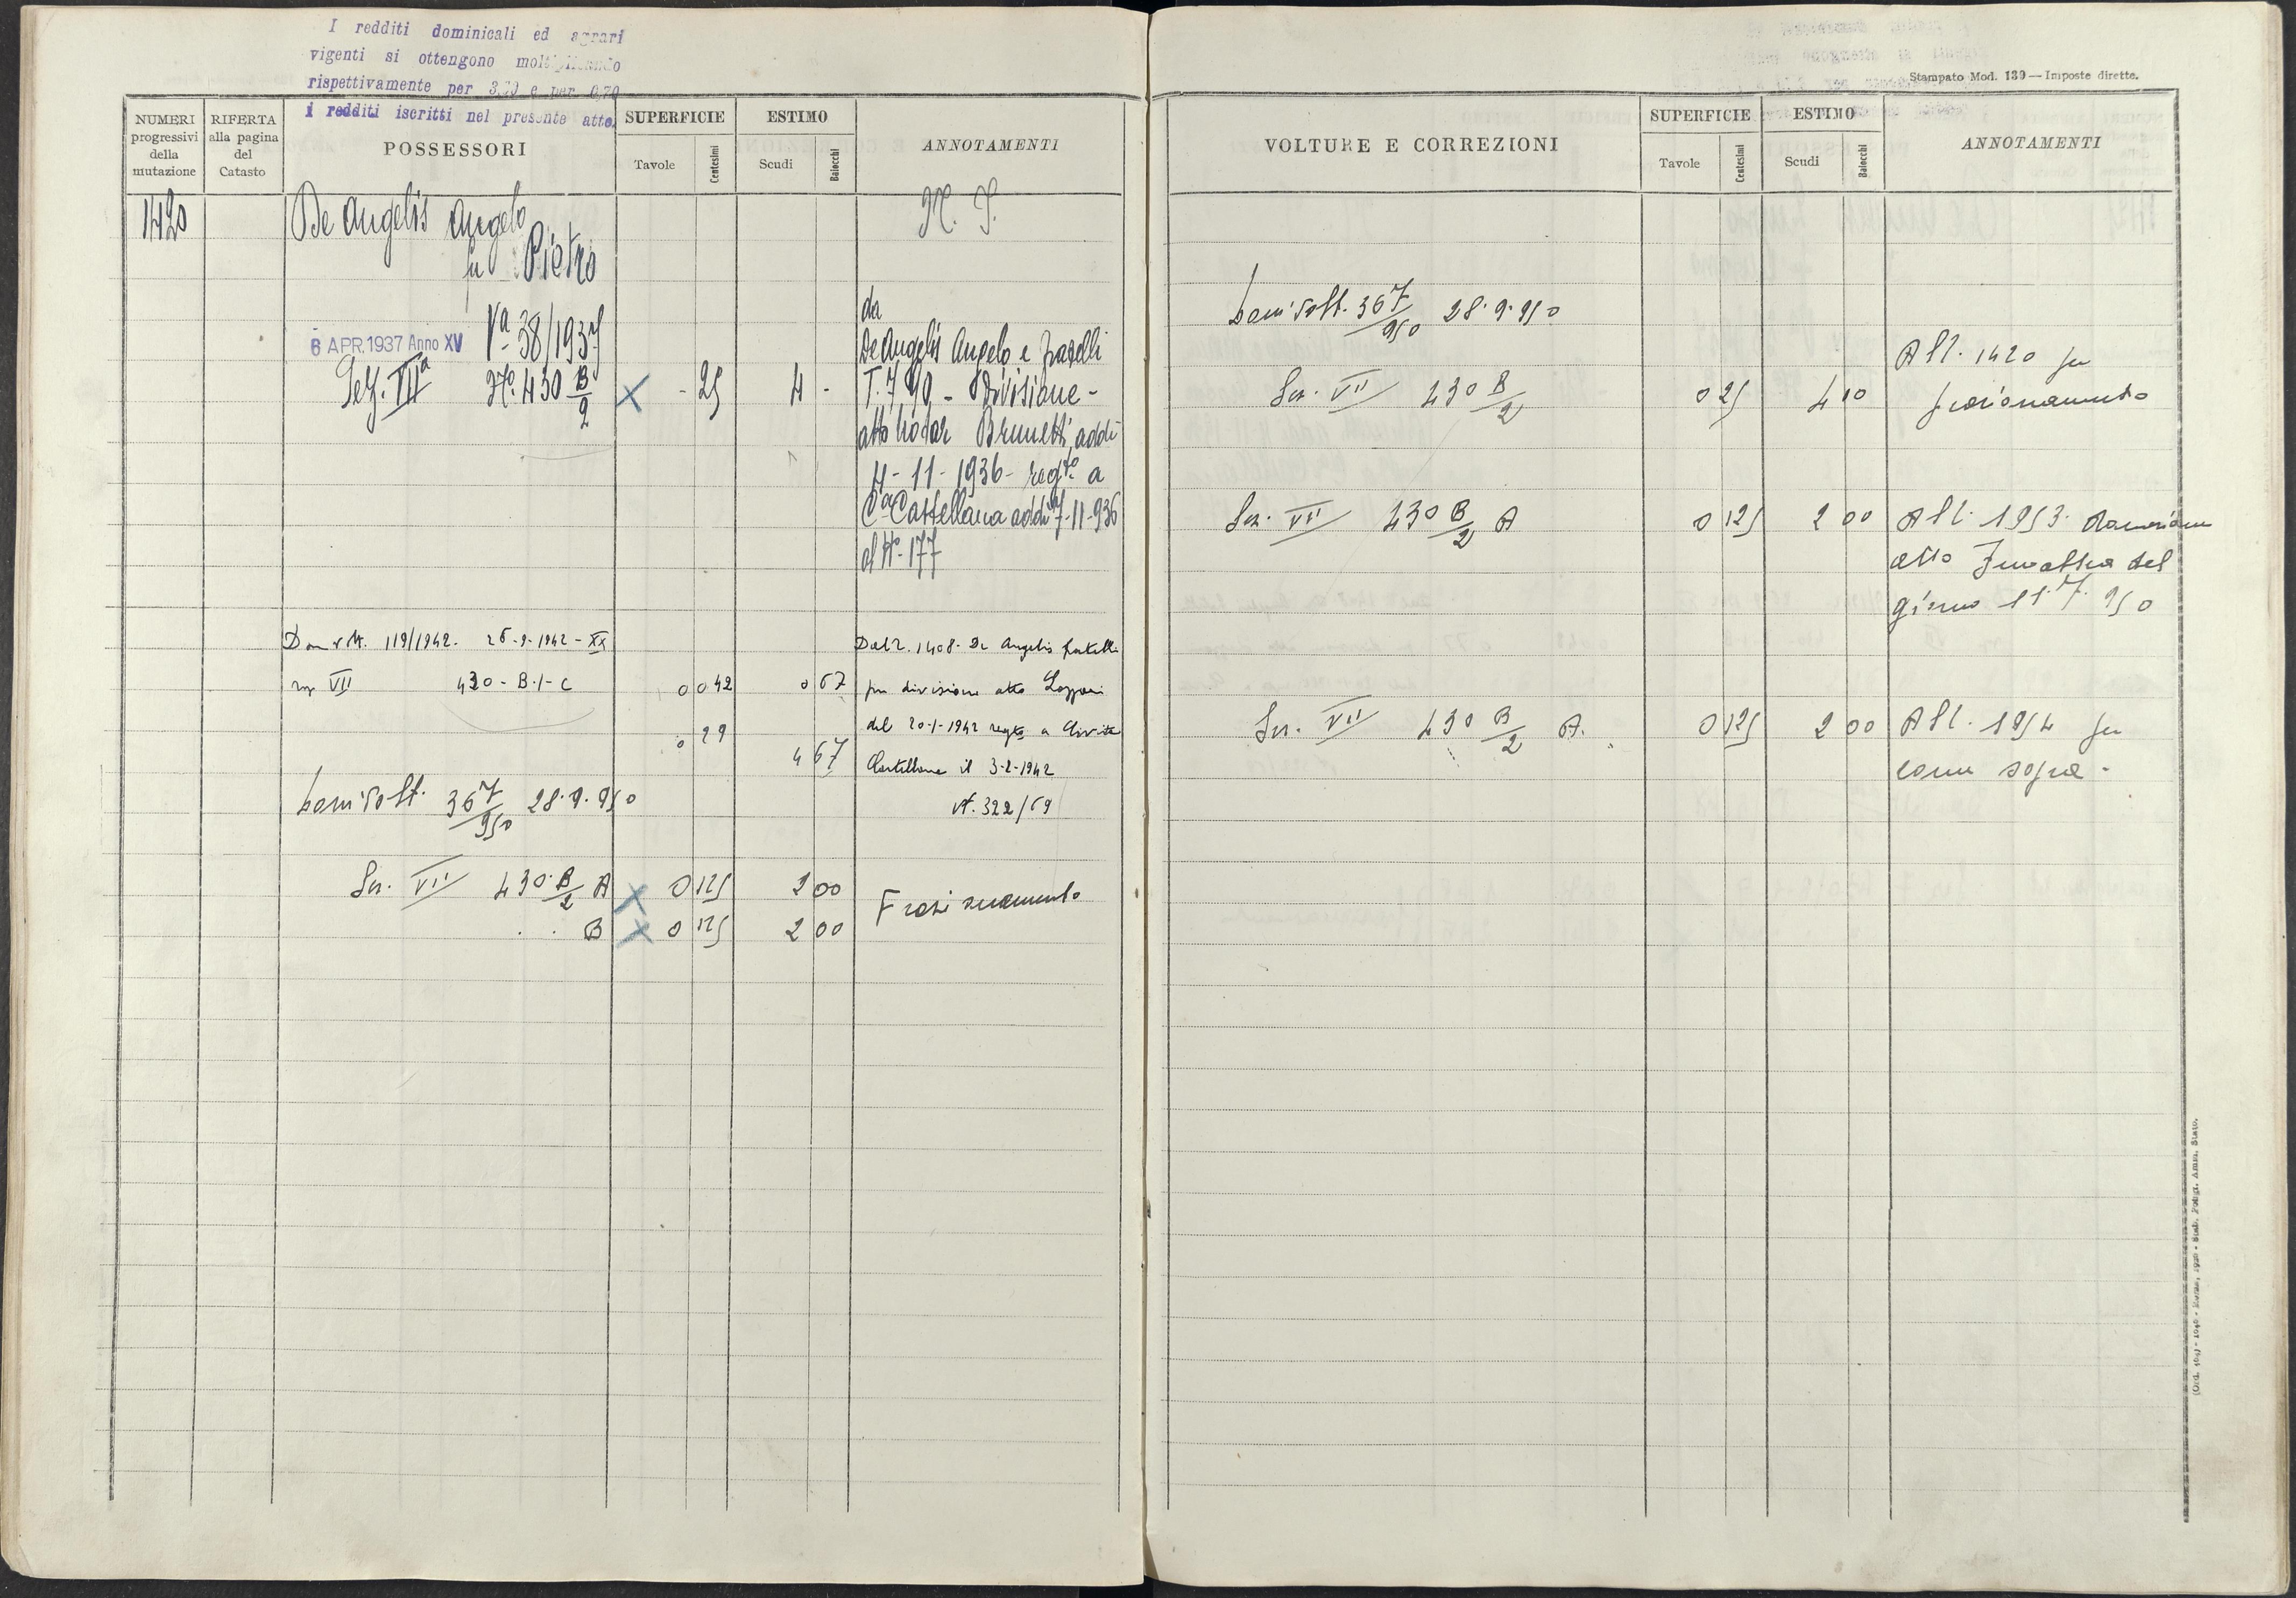 I redditi dominicali ed agrari
vigenti si ottengono moltiplicando
rispettivamente per 3,20 e per 0,70
i redditi iscritti nel presente atto.
NUMERI
progressivi
della
mutazione
RIFERTA
alla pagina
del
Catasto
POSSESSORI
SUPERFICIE
Tavole
Centesimi
ESTIMO
Scudi
Baiocchi
ANNOTAMENTI
1420
De Angelis Angelo
fu Pietro
6 APR. 1937 Anno XV Va 38/1937
Sez. VIIa No. 430 B/2 X - 25 4 -
da
De Angelis Angelo e fratelli
T. 790 - Divisione -
atto notar Brunetti, addì
4-11-1936- regto a
Ca Castellana addì 7-11-936
al No. 177
119/1942. 26-9-1942-XX
VII 430-B-1-C 0 042 0 67
0 29
4 67
Dal 2. 1408. De Angelis fratelli
per divisione atto
del 20-1-1942 regto a Civita
Castellana il 3-2-1942
N. 322/69
367/950 28.9.950
Sez. VII 430 B/2 A X 0 125 2 00
" " B X 0 125 2 00
Frazionamento
Stampato Mod. 139 — Imposte dirette.
VOLTURE E CORREZIONI
SUPERFICIE
Tavole
Centesimi
ESTIMO
Scudi
Baiocchi
ANNOTAMENTI
367/950 28.9.950
Sez. VII 430 B/2 0 25 4 00
All. 1420 per
frazionamento
Sez. VII 430 B/2 A 0 125 2 00
All. 1953. donazione
atto del
giorno 11.7.950
Sez. VII 430 B/2 A. 0 125 2 00
All. 1954 per
come sopra -